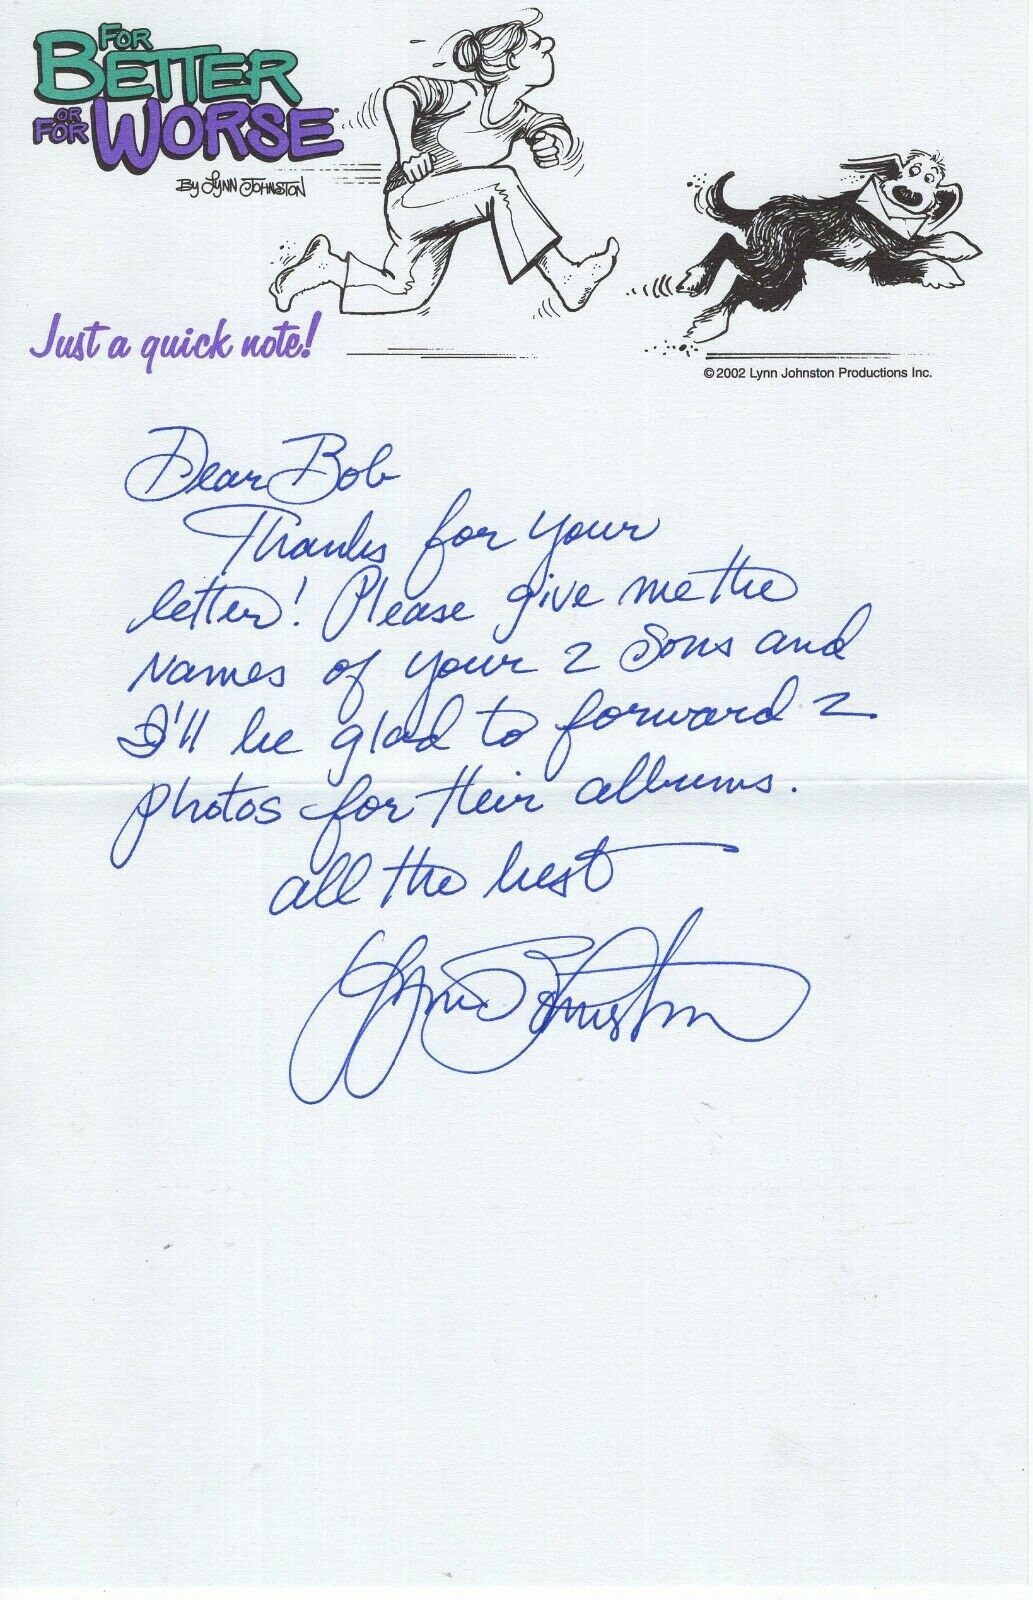 FOR
BETTER
OR
FOR WORSE
BY LYNN JOHNSTON
Just a quick note!
© 2002 Lynn Johnston Productions Inc.
Dear Bob
Thanks for your
letter! Please give me the
names of your 2 sons and
I'll be glad to forward 2
photos for their albums.
all the best
Lynn Johnston